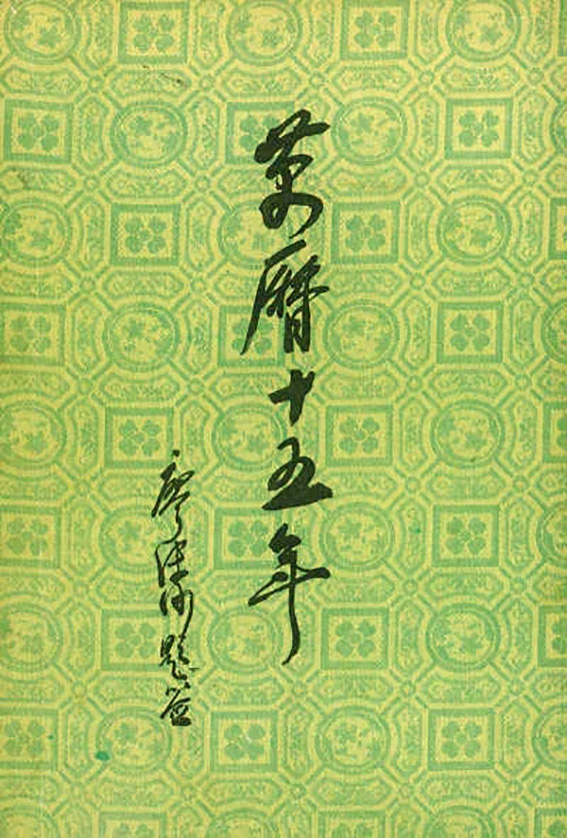 萬曆十五年
廖沫沙題签